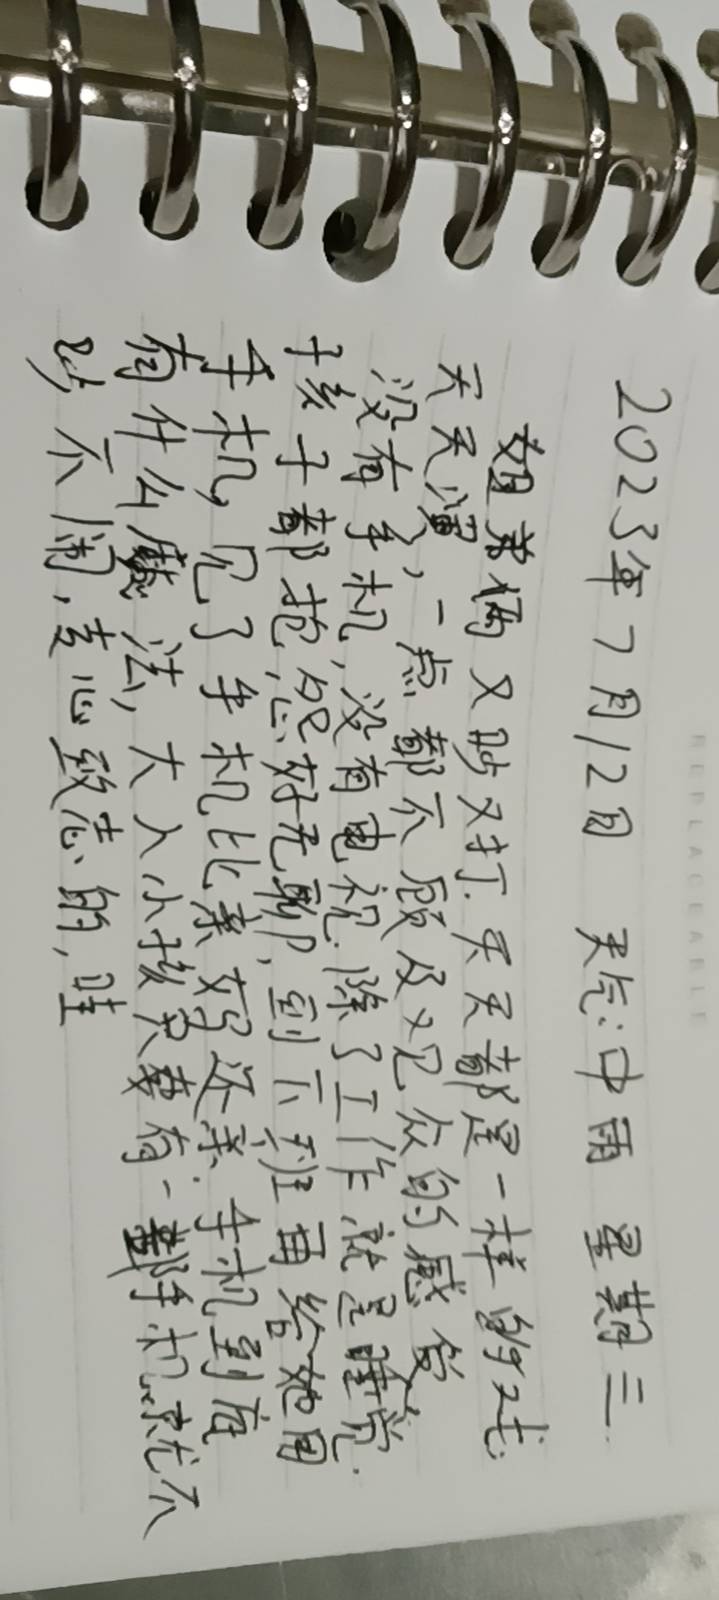 REPLACEABLE
2023年7月12日 天气:中雨 星期三.
姐弟俩又吵又打.天天都是一样的过.
天天漫,一点都不顾及父母的感受
没有手机,没有电视.除了工作就是睡觉.
孩子都抱怨好无聊,到下班再给她用
手机,见了手机比亲妈还亲.手机到底
有什么魔法,大人小孩只要有一部手机就不
吵不闹,专心致志的,哇